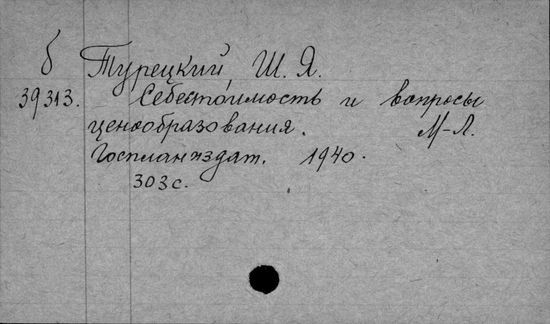 б Турецкий, Ш. Я.
39313. Себестоимость и вопросы
ценообразования. М-Л.
Госпланиздат. 1940.
303 с.